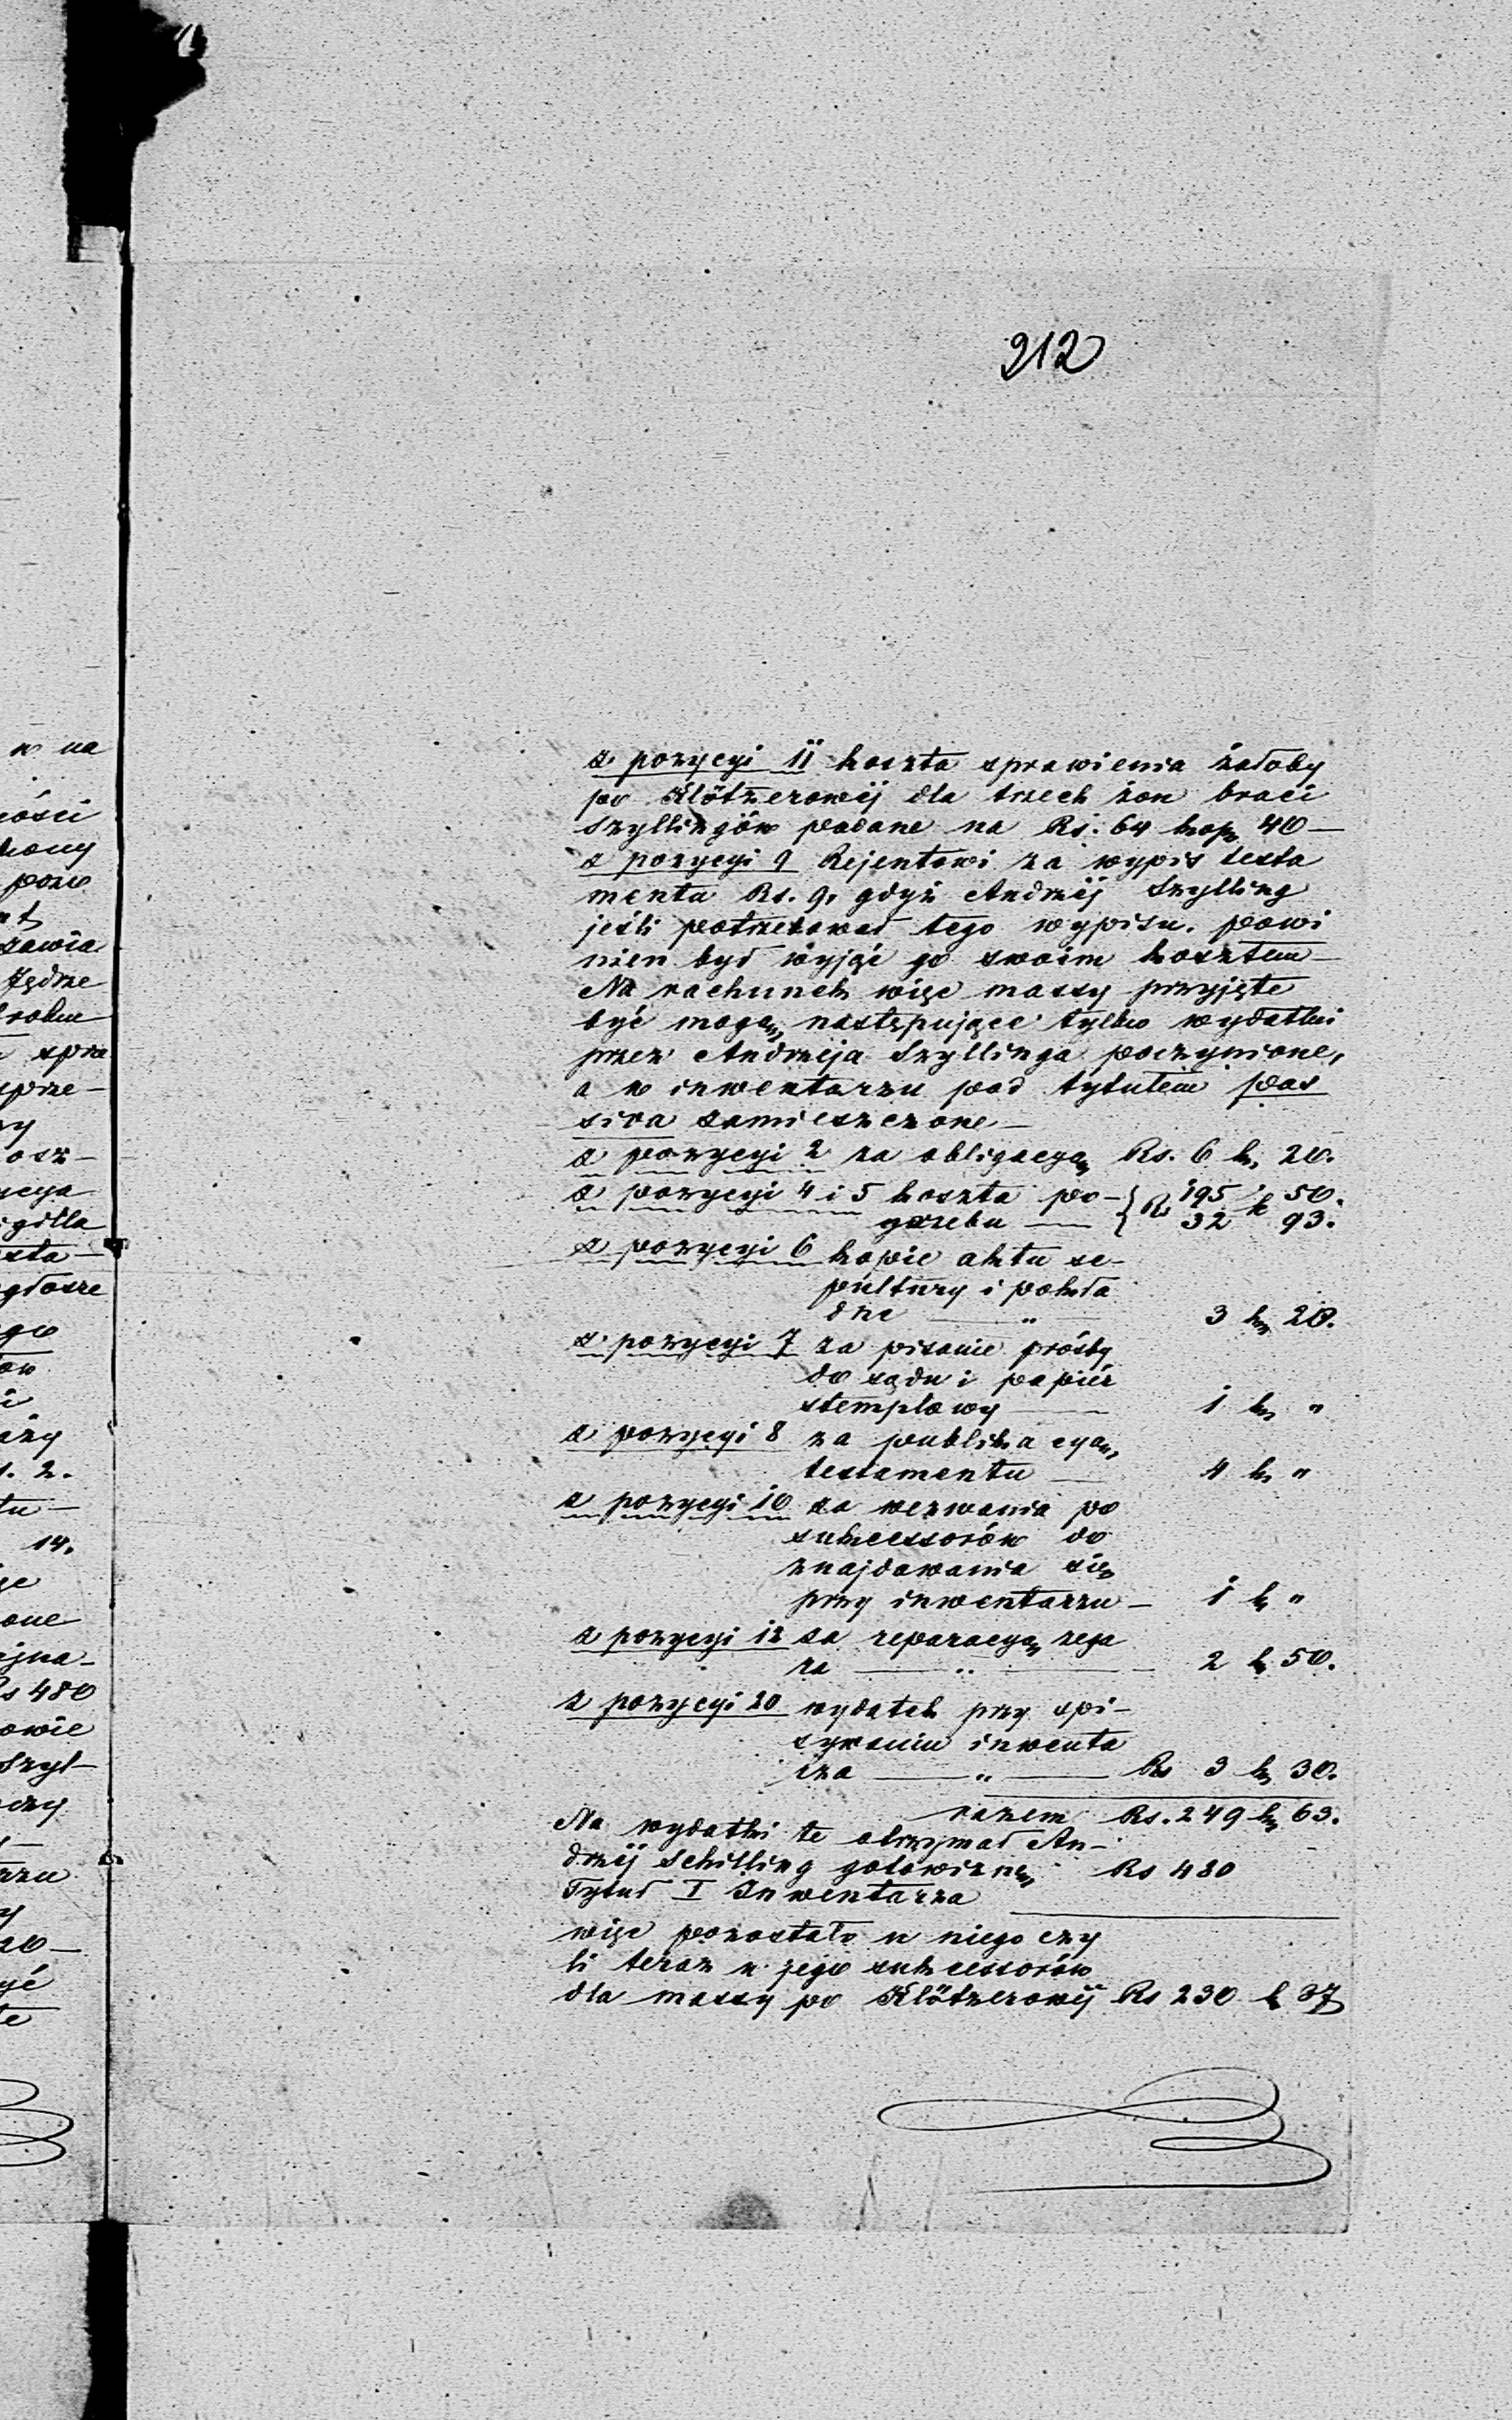 212
z pozycyi 11 koszta sprawienia żałoby
po Klötzerowéj dla trzech żon braci
Szyllingów podane na Rs. 64 kop. 40 —
z pozycyi 9 Rejentowi za wypis testa
mentu Rs. 9, gdyż Andrzéj Szylling
jeśli potrzebował tego wypisu, powi
nien był wyjąć go swoim kosztem —
Na rachunek więc massy przyjęte
być mogą, następujące tylko wydatki
przez Andrzeja Szyllinga poczynione,
a w inwentarzu pod tytułem pas
siva zamieszczone —
z pozycyi 2 za obligacyą Rs. 6 k. 20.
z pozycyi 4 i 5 koszta po- { Rs 195 k 50.
grzebu — { 32 93.
z pozycyi 6 kopie aktu se-
pultury i pokła
dne — " — 3 k. 20.
z pozycyi 7 za pisanie prośby
do sądu i papiér
stemplowy — 1 k. "
z pozycyi 8 za publikacyą
testamentu — 4 k. "
z pozycyi 10 za wezwania po
sukcessorów do
znajdowania się
przy inwentarzu — 1 k "
z pozycyi 12 za reparacyą zega
ra — " — 2 k. 50.
z pozycyi 20 wydatek przy spi-
sywaniu inwenta
rza — " — Rs 3 k. 30.
razem Rs. 249 k. 63.
Na wydatki te otrzymał An-
drzéj Schilling gotowizną Rs 480
Tytuł I Inwentarza
więc pozostało u niego czy
li teraz u jego sukcessorów
dla massy po Klötzerowéj Rs 230 k 37
w na
pozw
zawia
Jędrze
spra
sprze-
osz-
gilla
głosze
ego
i
14.
one
Rs 480
owie
Szyl-